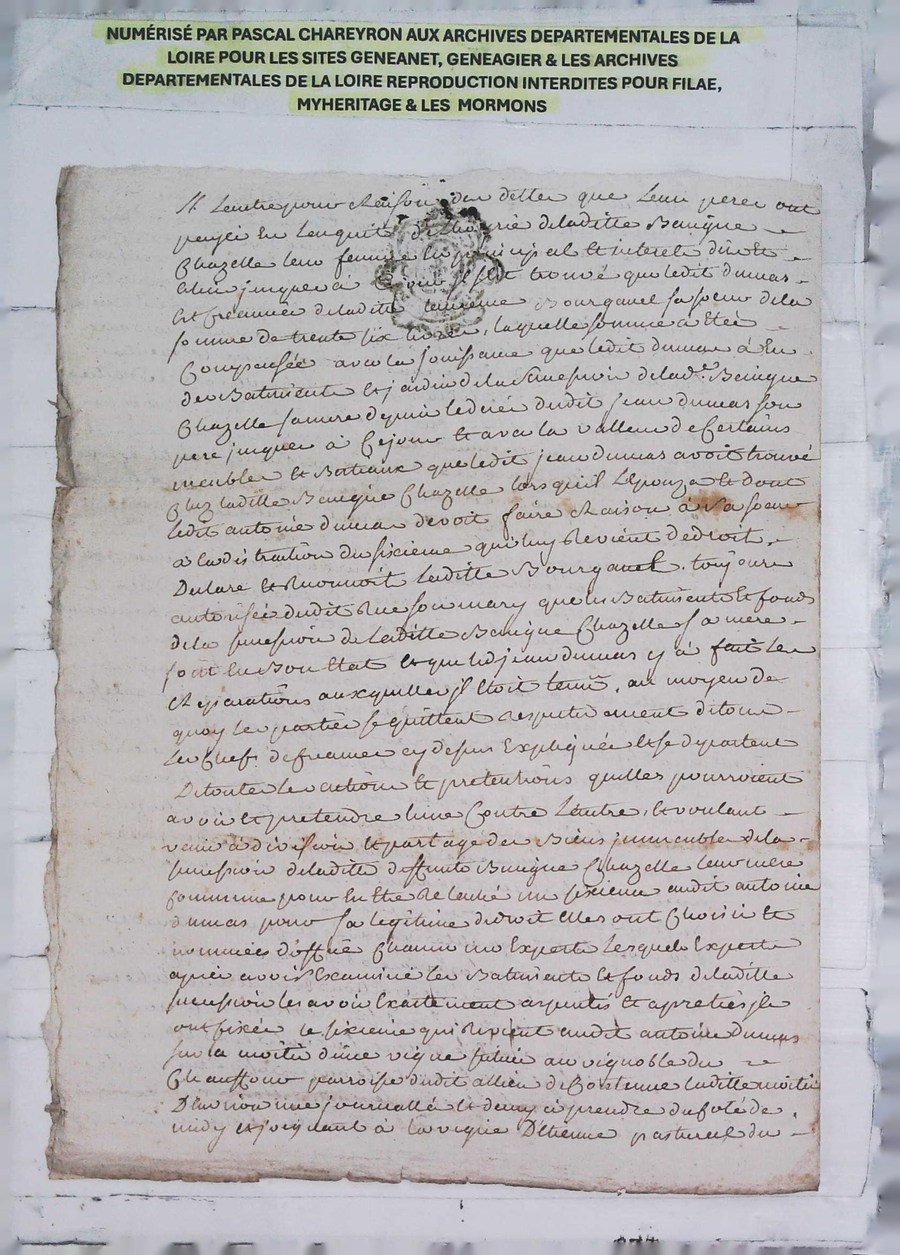 NUMÉRISÉ PAR PASCAL CHAREYRON AUX ARCHIVES DEPARTEMENTALES DE LA
LOIRE POUR LES SITES GENEANET, GENEAGIER & LES ARCHIVES
DEPARTEMENTALES DE LA LOIRE REPRODUCTION INTERDITES POUR FILAE,
MYHERITAGE & LES MORMONS
Lautre pour raison des dettes que leur pere ont
payé en deladitte Benigne
Chazelle leur femme le principal et interets
jusques à ce jour il sest trouvé que ledit dumas
est creancier deladitte Bourganel sa soeur dela
somme de trente six livres, laquelle somme a etée
Compensée avec la jouissance que ledit dumas à eu
des Batiments et jardin dela succession delad.e Benigne
Chazelle sa mere depuis le décés dudit jean dumas son
pere jusques à ce jour et avec la valleur de certains
meubles et Bestiaux que ledit jean dumas avoit trouvé
chez laditte Benigne Chazelle lorsquil Lepouza et dont
ledit antoine dumas devoit faire raison à sa soeur
à la distraction du sixieme qui luy revient de droit,
Declare et reconnoit laditte Bourganel toujours
autorisée dudit son mary que les Batiments et fonds
dela succession de laditte Benigne Chazelle sa mere
sont en Bon Etat et que led jean dumas y à fait les
reparations auxquelles jl etoit tenu, au moyen de
quoy les parties se quittent respectivement de tous
les Chefs de creances cy dessus Expliquées et se departent
De toutes les actions et pretentions quelles pourroient
avoir et pretendre lune Contre Lautre, et voulant
venir à division et partage des Biens jmmeubles dela
succession deladitte deffunte Benigne Chazelle leur mere
commune pour en etre relaché un sixieme audit antoine
dumas pour sa legitime de droit elles ont Choisi et
nommées d'office Chacun un Experts lesquels Experts
après avoir Examiné les Batiments et fonds deladitte
succession les avoir Exactement arpentés et apretiés jls
ont fixée le sixieme qui revient audit antoine dumas
sur la moitié d'une vigne située au vignoble du
Chauffour parroisse dudit allieu de Contenue laditte moitié
D'environ une journallée et demy à prendre du coté de
midy et joignant à la vigne D'etienne pastural du